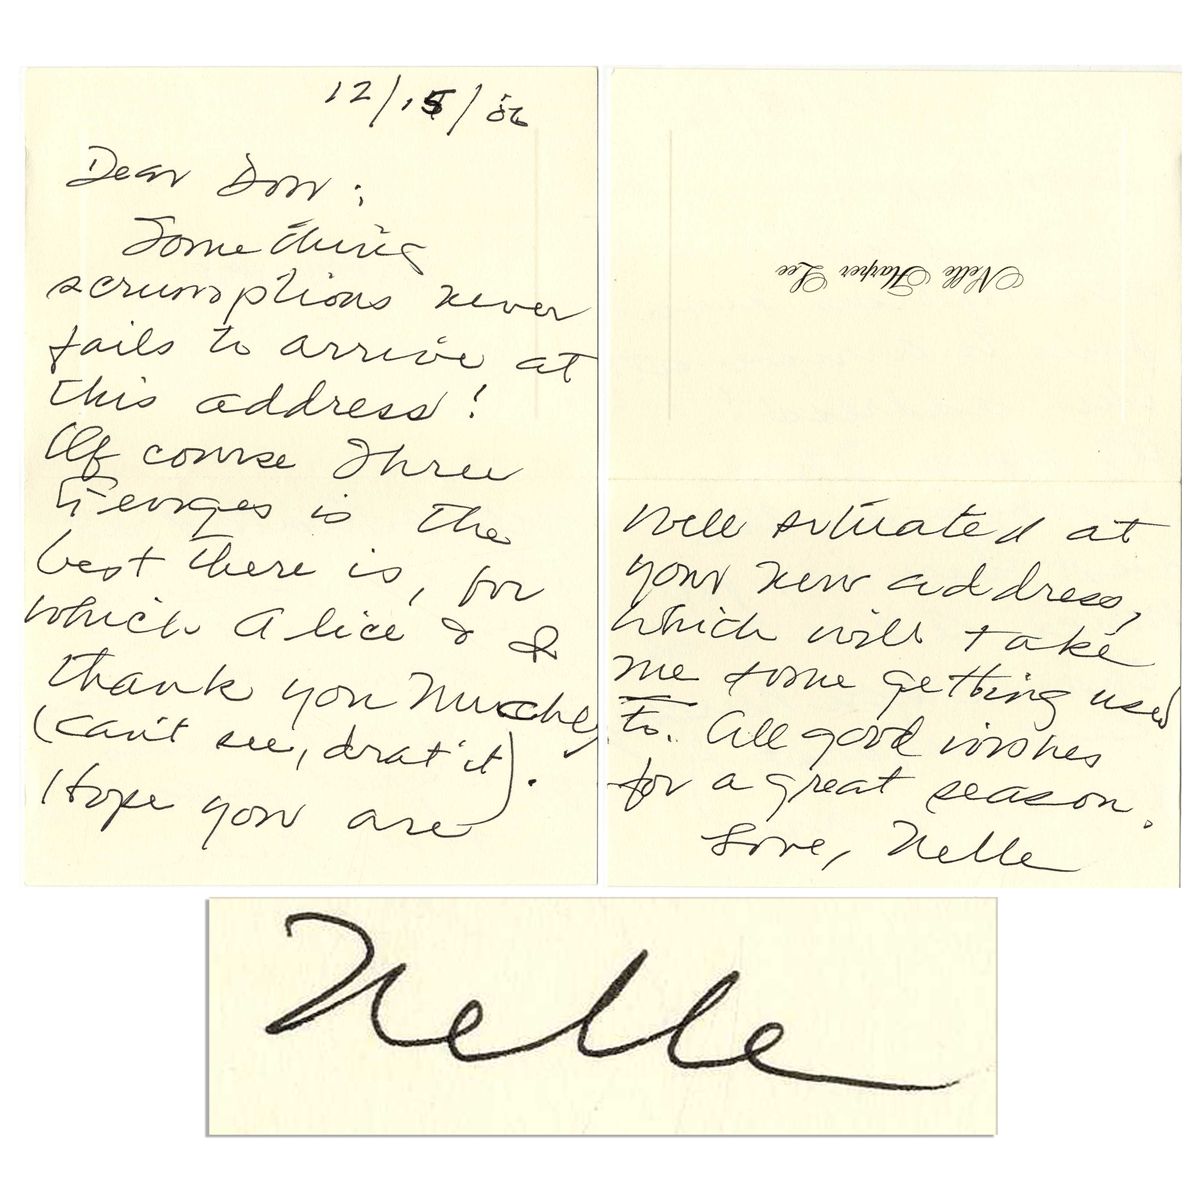 12/15/06
Dear Don:
Something
scrumptious never
fails to arrive at
this address!
Of course Three
Georges is the
best there is, for
which Alice & I
thank you muchly
(can't see, drat it).
Hope you are
Nelle Harper Lee
well situated at
your new address,
which will take
me some getting used
to. All good wishes
for a great season.
Love, Nelle
Nelle